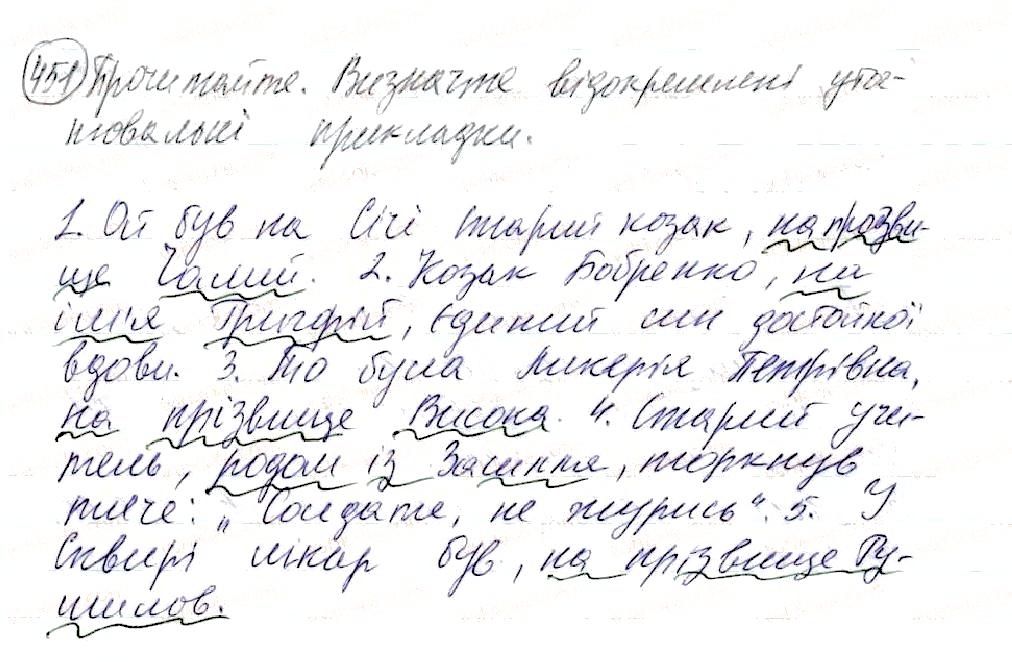 451 Прочитайте. Визначте відокремлені уто-
чнювальні прикладки.
1. Ой був на Січі старий козак, на прозви-
ще Чалий. 2. Козак Бобренко, на
ім'я Григорій, єдиний син достойної
вдови. 3. То була Ликерія Петрівна,
на прізвище Висока. 4. Старий учи-
тель, родом із Засилля, торкнув
плече: „Солдате, не журись". 5. У
Сквирі лікар був, на прізвище Ру-
шилов.